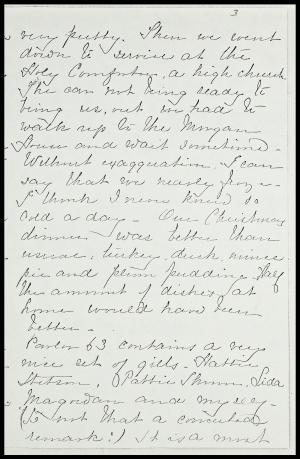 3
very pretty. Then we went
down to service at the
Holy Comforter, a high church
The car not being ready to
bring us, out we had to
walk up to the Morgan
House and wait sometime.
Without exaggeration, I can
say that we nearly froze-
I think I never knew so
cold a day - Our Christmas
dinner was better than
usual, turkey, duck, mince
pie and plum pudding. Half
the amount of dishes, at
home would have been
better.
Parlor 63 contains a very
nice set of girls. Hattie
Stetson, Pattie, Lida
and myself.
(Is not that a conceited
remark?) It is a most